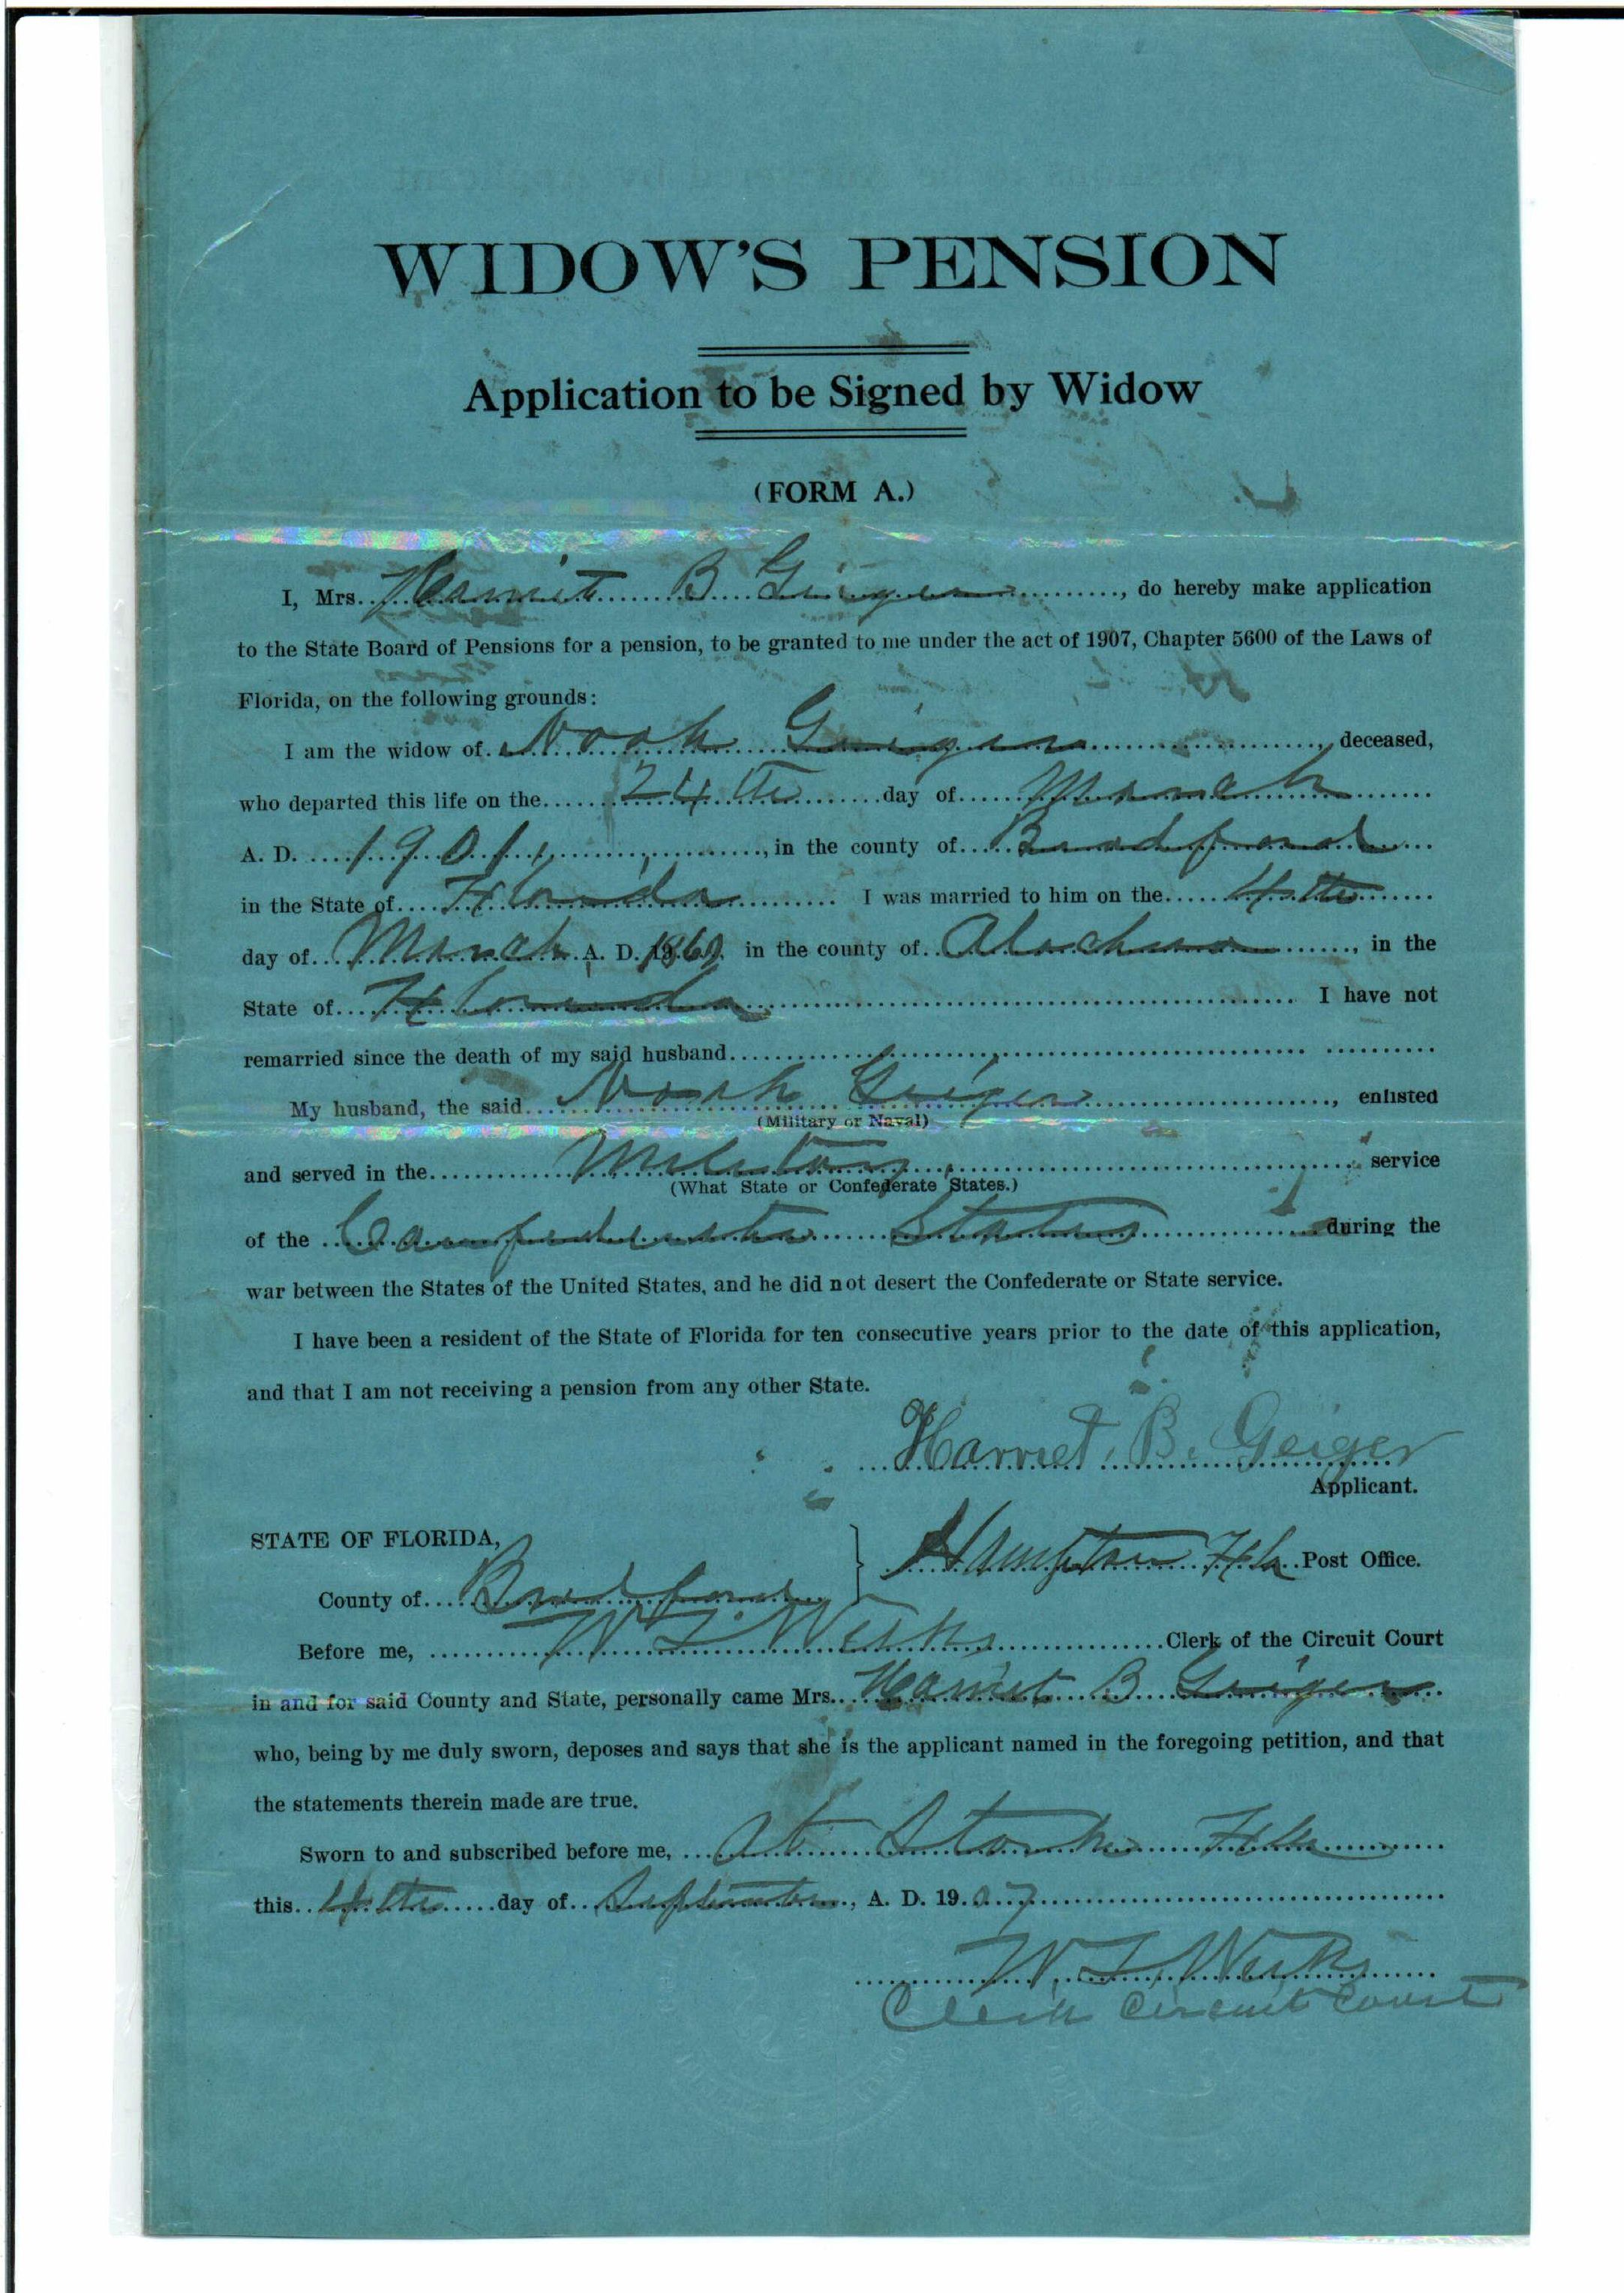 WIDOW'S PENSION
Application to be Signed by Widow
(FORM A.)
I, Mrs. Harriet B Geiger, do hereby make application
to the State Board of Pensions for a pension, to be granted to me under the act of 1907, Chapter 5600 of the Laws of
Florida, on the following grounds:
I am the widow of Noah Geiger, deceased,
who departed this life on the 24th day of March
A. D. 1901, in the county of Bradford
in the State of Florida I was married to him on the 4th
day of March A. D. 1869 in the county of Alachua, in the
State of Florida I have not
remarried since the death of my said husband
My husband, the said Noah Geiger, enlisted
(Military or Naval)
and served in the Military service
(What State or Confederate States.)
of the Confederate States during the
war between the States of the United States, and he did not desert the Confederate or State service.
I have been a resident of the State of Florida for ten consecutive years prior to the date of this application,
and that I am not receiving a pension from any other State.
Harriet. B. Geiger
Applicant.
STATE OF FLORIDA,
Hampton Fla Post Office.
County of Bradford
Before me, Clerk of the Circuit Court
in and for said County and State, personally came Mrs. Harriet B Geiger
who, being by me duly sworn, deposes and says that she is the applicant named in the foregoing petition, and that
the statements therein made are true.
Sworn to and subscribed before me, at Starke Fla
this 4th day of September, A. D. 1907
Clerk Circuit Court